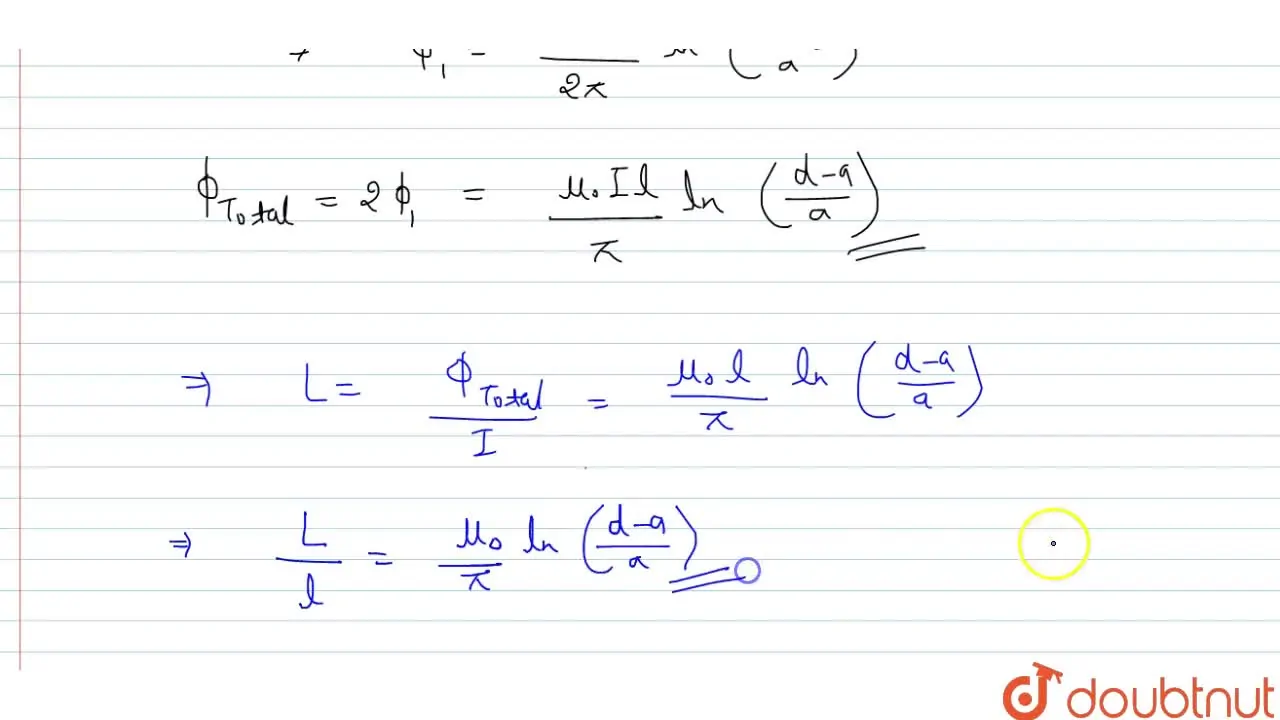 ϕ₁ = ── 2π ln ( a )
ϕTotal = 2ϕ₁ = μ₀Il/π ln ((d-a)/a)
⇒ L = ϕTotal/I = μ₀l/π ln ((d-a)/a)
⇒ L/l = μ₀/π ln ((d-a)/a)
doubtnut